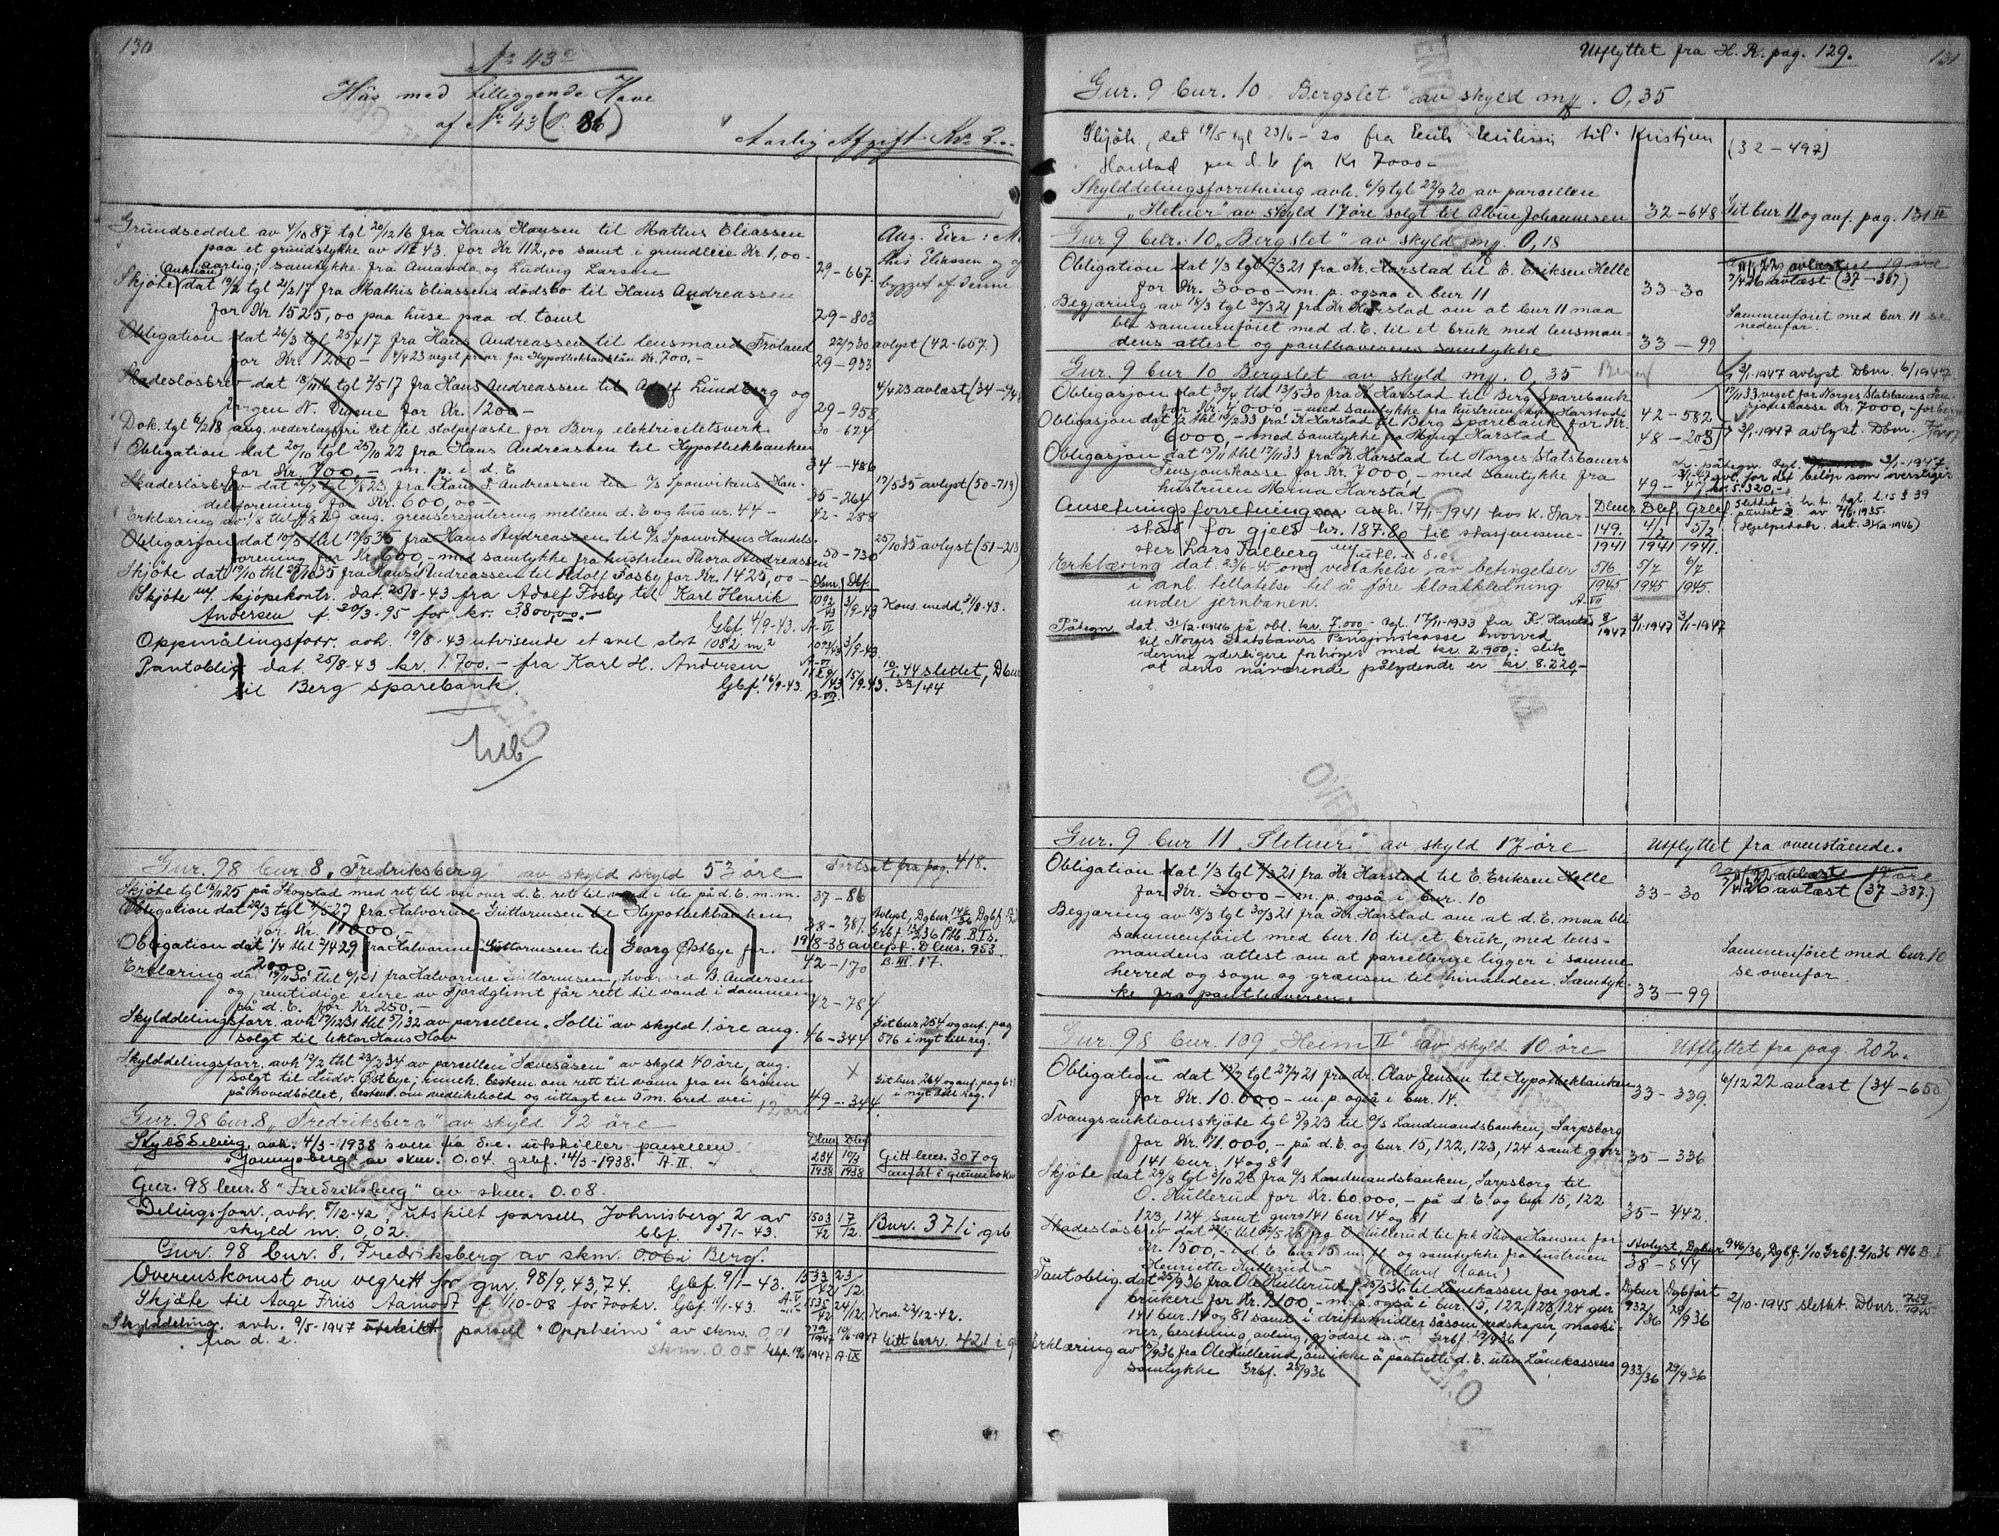 130
No 43a
Hus med tilliggende Have
af No 43 (P. 86)
Aarlig Afgift Kr. 2...
Grundseddel av 4/10 87 tgl 20/12 16 fra Hans Hansen til Mathis Eliassen
paa et grundstykke av No 43 for Kr 112,00 samt i grundleie Kr 1,00
aarlig; samtykke fra Amanda og Ludvig Larsen 29-667
Skjøte (Auktion) dat tgl 2/2 17 fra Mathis Eliassens dødsbo til Hans Andreassen
for Kr 1525,00 paa huse paa d. tomt 29-803
Obligation dat 26/3 tgl 25/4 17 fra Hans Andreassen til lensmand Frøland 22/7 30 avlyst (42-657)
for Kr. 1200 - 4/4 23 veget prior. for Hypothekbanklån Kr. 700,- 29-933
Skadesløsbrev dat 18/11 16 tgl 2/5 17 fra Hans Andreassen til Adolf Lundberg og 4/4 23 avlæst (34-
Jørgen N. for Kr. 1200- 29-958
Dok. tgl 6/2 18 ang. vederlagsfri ret til stolpefæste for Berg elektricitetsverk 30-624
Obligation dat 20/10 tgl 25/10 22 fra Hans Andreassen til Hypothekbanken
for Kr. 700,- m. p. i d. E 34-486
Skadesløsbrev dat fra Hans Andreassen til A/S Sponvikens Han-
delsforening for Kr. 600,00 35-264 17/5 35 avlyst (50-719)
Erklæring av 1/8 ang. grenseregulering mellem d. E og hus nr. 44 - 42-288
Obligasjon dat 10/5 thl 17/5 35 fra Hans Andreassen til A/S Sponvikens Handels-
forening for Kr. 600,- med samtykke fra hustruen Thora Andreassen 50-730 25/10 35 avlyst (51-213
Skjøte dat 19/10 thl 25/10 35 fra Hans Andreassen til Adolf Fosby for Kr. 1425,00- Dbnr Dbf
Skjøte m/ kjøpekontr. dat. 25/8-43 fra Adolf Fosby til Karl Henrik 1092/43 3/9-43 Kons. medd. 31/8-43.
Andersen f. 20/3-95 for kr. 3800,00.- Gbf. 4/9-43. A-VI
Oppmålingsforr. avh. 19/8-43 utvisende et areal stort 1082 m.2 3/9-43.
Pantoblig dat. 25/8-43 kr. 1.700,- fra Karl H. Andersen 15/9-43. slettet, Dbnr
til Berg sparebank. Gbf. 16/9-43.
Gnr. 98 bnr. 8 "Fredriksberg" av skyld skyld 53 øre Fortsat fra pag. 418.
Skjøte tgl 25 på Skogstad med ret til vei over d. E. ret til vand i ile på d. E. m. m. 37-86
Obligation dat 22/3 tgl 4/5 27 fra Halvorine Guttormsen til Hypothekbanken
for Kr. 11000,- 38-787.
Obligation dat 1/4 thl 2/4 29 fra Halvorine Guttormsen til Georg Østbye for 19/8-38 avlyst. Dbnr. 953
2000 42-170 B. III 17.
Erklæring dat 19/11 30 thl 6/1 31 fra Halvorine Guttormsen, hvorved B. Andersen
og fremtidige eiere av Fjordglimt får rett til vand i dammen
på d. E. for Kr 250.- 42-784
Skylddelingsforr. avh 17/12 31 thl 5/1 32 av parsellen "Solli" av skyld 1 øre ang.
solgt til lektor Hans Hov 46-344 Git bnr. 254 og anf. pag 576 i nyt till reg.
Skylddelingsforr. avh 12/2 thl 23/2 34 av parsellen "Sævesåsen" av skyld 40 øre, ang.
solgt til Ludv. Østbye; inneh. bestem. om rett til vann fra en brønn
på hovedbøllet, bestem. om vedlikehold og utlagt en 5 m. bred vei 49-344. Git bnr 264 og anf. pag i nyt till Reg.
Gnr. 98 bnr. 8 "Fredriksberg" av skyld 12 øre
Skylddeling avh. 4/3-1938 hvorved fra d.e. utskilles parsellen Dbnr Dbf
"Jonnysberg" av skm. 0.04. grbf. 14/3-1938. A II 234/1938 10/3 1938 Gitt bnr. 307 og anført i grunnboken
Gnr. 98 bnr. 8 "Fredriksberg" av skm. 0.08.
Delingsforr. avh. 5/12-42, utskilt parsell Johnisberg 2 av 1503/42 17/12 Bnr. 371 i grb
skyld m. 0,02. Gbf. 5/1-43.
Gnr. 98 bnr. 8, Fredriksberg av skm. 0.06 i Berg.
Overenskomst om vegrett for gnr. 98/9,43,74. Gbf. 9/1-43. 1533/42 23/12
Skjøte til Aage Friis Aamodt f. 4/10-08 for 700 kr. Gbf. 4/1-43. 1535/42 24/12 Kons. 22/12-42.
Skylddeling, avh. 9/5-1947 utskilt parsell "Oppheim" av skm. 0,01 779/1947 Gitt bnr. 421 i g
fra d. e. skm. 0.05 A IX
Utflyttet fra H. R. pag. 129. 131
Gnr. 9 bnr. 10 "Bergslet" av skyld mk. 0,35
Skjøte, dat 19/5 tgl 23/6-20 fra Erik Eriksen til Kristian (32-497)
Harstad paa d. E for Kr 7000-
Skylddelingsforretning avh. 6/9 tgl 22/9 20 av parsellen
"Sletner" av skyld 17 øre solgt til Albin Johannesen 32-648 Git bnr 11 og anf. pag. 131 II
Gnr 9 bnr. 10 "Bergslet" av skyld mk. 0,18
Obligation dat 1/3 tgl 2/3 21 fra Kr. Harstad til E. Eriksen Helle
for Kr. 3000- m. p. ogsaa i bnr 11 33-30 7/4 26 avlæst (37-387)
Begjæring av 18/3 tgl 30/3 21 fra Kr Harstad om at bnr 11 maa
bli sammenføiet med d. E. til et bruk med lensman-
dens attest og panthaverens samtykke 33-99 Sammenføiet med bnr. 11 se nedenfor.
Gnr. 9 bnr 10 Bergslet av skyld mk. 0,35
Obligasjon dat 30/4 thl 13/5 30 fra K Harstad til Berg Sparebank 3/1-1947 avlyst Dbnr. 6/1947
for Kr. 4000,- med samtykke fra hustruen Harstad 42-582
Obligasjon dat 1/2 thl 10/2 33 fra K. Harstad til Berg Sparebank for Kr.
6000,- med samtykke fra Mina Harstad 48-203 3/1-1947 avlyst. Dbnr.
Obligasjon dat 15/11 thl 17/11 33 fra K. Harstad til Norges Statsbaners
Pensjonskasse for Kr. 7000,- med samtykke fra
hustruen Mina Harstad 49-47
Dbnr Dbf. Grbf.
Ansetningsforretning avh. 17/1 1941 hos K. Har-
stad for gjeld kr. 187.80 til stasjonsme- 149. 4/2 5/2
ster Lars Falberg 1941 1941 1941.
Erklæring dat. 23/6-45 om vedtakelse av betingelser 516 5/7 6/7
i anl. tillatelse til å føre kloakkledning 1945 1945 1945.
under jernbanen. A-VII
Påtegn. dat. 31/12-1946 på obl. kr. 7.000- tgl. 17/11-1933 fra K. Harstad 8/1947 3/1-1947 3/1-1947
til Norges Statsbaners Pensjonskasse hvorved
denne ytterligere forhøyes med kr. 2.900,- slik
at dens nåværende pålydende er kr. 8.220,-
Gnr. 9 bnr 11 "Sletner" av skyld 17 øre Utflyttet fra ovenstående.
Obligation dat 1/3 tgl 2/3 21 fra Kr Harstad til E. Eriksen Helle
for Kr. 3000- m. p. også i bnr. 10 33-30 7/4 26 avlæst (37-387.)
Begjæring av 18/3 tgl 30/3 21 fra Kr. Harstad om at d. E. maa bli
sammenføiet med bnr. 10 til et bruk, med lens-
mandens attest om at parsellerne ligger i samme
herred og sogn og grænsen til hinanden. Samtyk-
ke fra panthaveren. 33-99 Sammenføiet med bnr. 10 se ovenfor.
Gnr. 98 bnr. 109 "Heim II" av skyld 10 øre Utflyttet fra pag. 202.
Obligation dat 19/7 tgl 27/7 21 fra dr. Olav Jensen til Hypothekbanken
for Kr. 10.000 - m. p. også i bnr. 14. 33-339. 6/12 22 avlæst (34-650)
Tvangsauktionsskjøte tgl 5/9 23 til A/S Landmandsbanken, Sarpsborg
for Kr. 71.000,- på d. E og bnr 15, 122, 123, 124 samt gnr
141 bnr. 14 og 81 35-336
Skjøte dat 29/8 tgl 3/10 23 fra A/S Landmandsbanken, Sarpsborg til
O. Hullerud for Kr. 60.000,- på d. E. og bnr 15, 122
123, 124 samt gnr 141 bnr 14 og 81 35-442.
Skadesløsbrev dat thl fra O. Hullerud til frk Thora Hansen for
Kr. 1500,- i d. E. bnr 15 m. fl og samtykke fra hustruen 38-844
Henriette Hullerud
Pantoblig dat 25/9 36 fra Ole Hullerud til Lånekassen for jord-
brukere for Kr. 1300,- m. p. også i bnr. 15, 122, 123, 124 gnr 932/36 29/9 36 2/10-1945 slettet. Dbnr.
141 bnr. 14 og 81 samt i driftsmidler såsom redskaper, maski-
ner, besetning, avling, gjødsel m. v. Grbf. 29/9 36
Erklæring av 25/9 36 fra Ole Hullerud, om ikke å pantsette d. E. uten Lånekassens
samtykke Grbf. 29/9 36 933/36 29/9 36